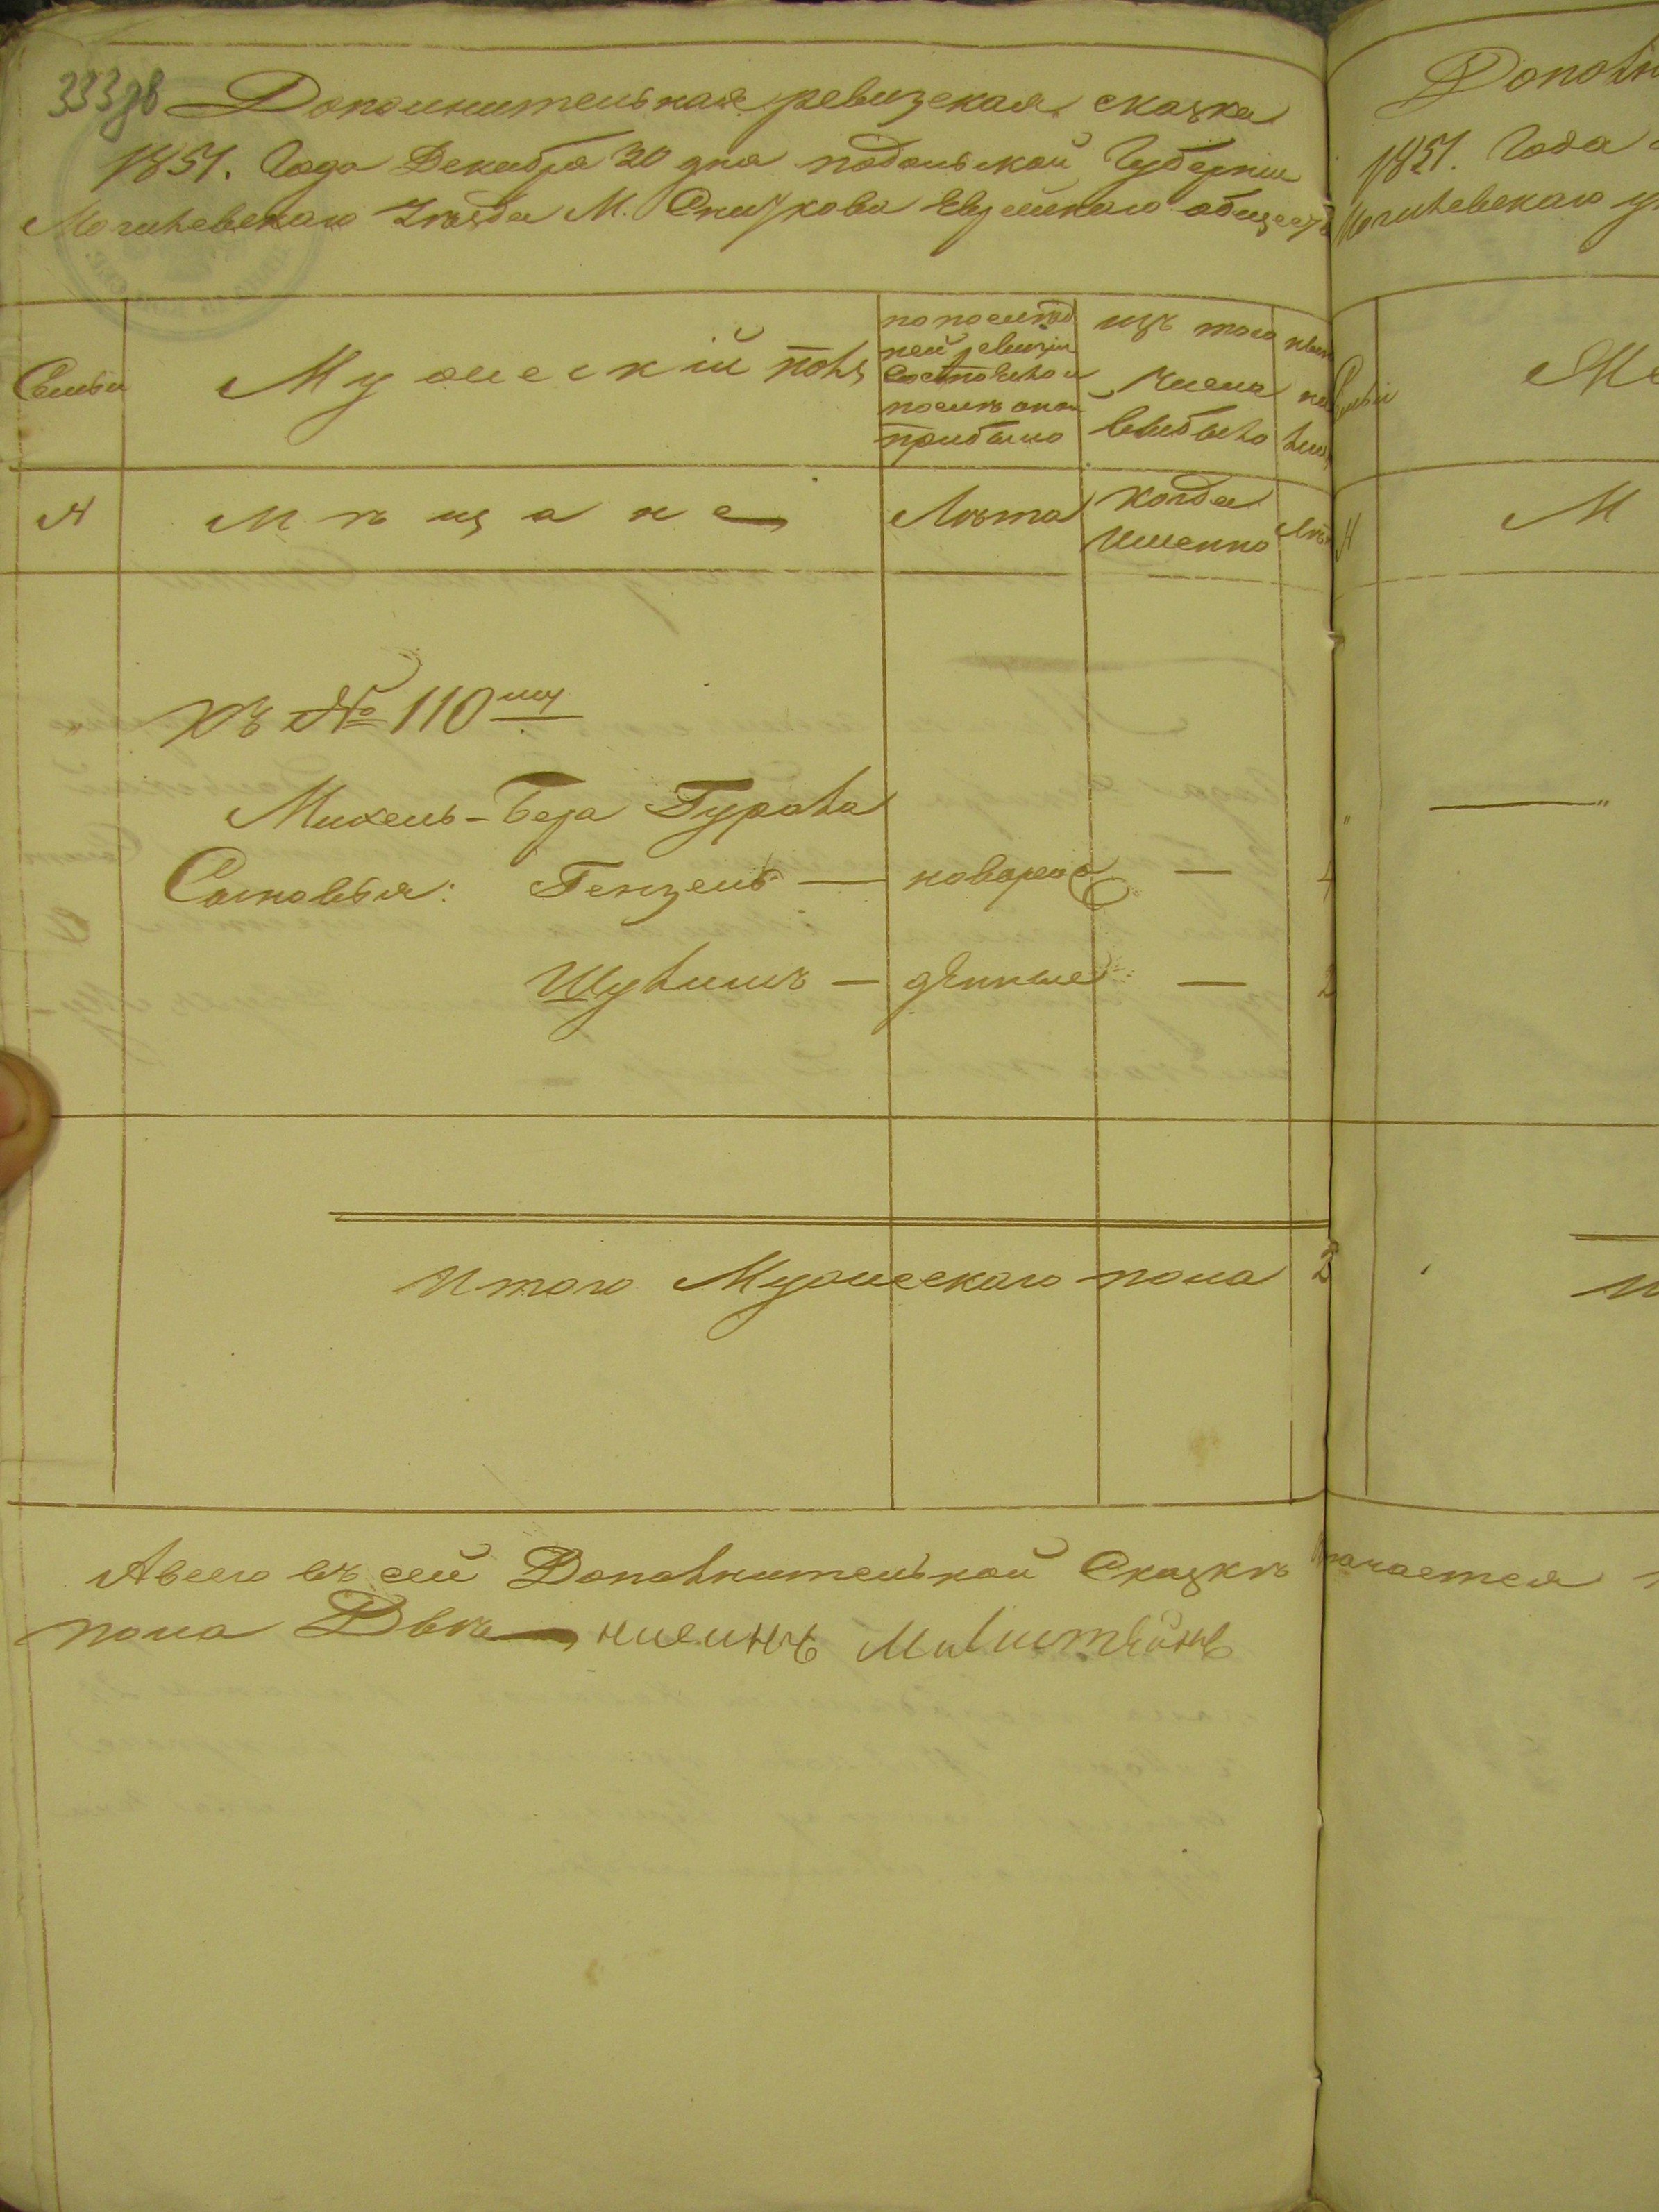 333
Дополнительная ревизская сказка
1851. Года Декабря 30 дня подольской Губернии
Могилевскаго Уѣзда М. Сниткова Еврейскаго общест
Семьи
Мужескій полъ
по послѣд
ней ревизіи
состояло и
послѣ оной
прибыло
изъ того
числа
выбыло
№
Мѣщане
Лѣта
Когда
Именно
Лѣт
Къ № 110му
Михель-Бера Гурала
Сыновья: Гензель — новорож —
Шулимъ — денные — 2
Итого Мужескаго пола 2
Авсего въ сей Дополнительной Сказкѣ значается
пола Двѣ
Дополн
1851. Года
Могилевскаго у
Семьи
М
№
М